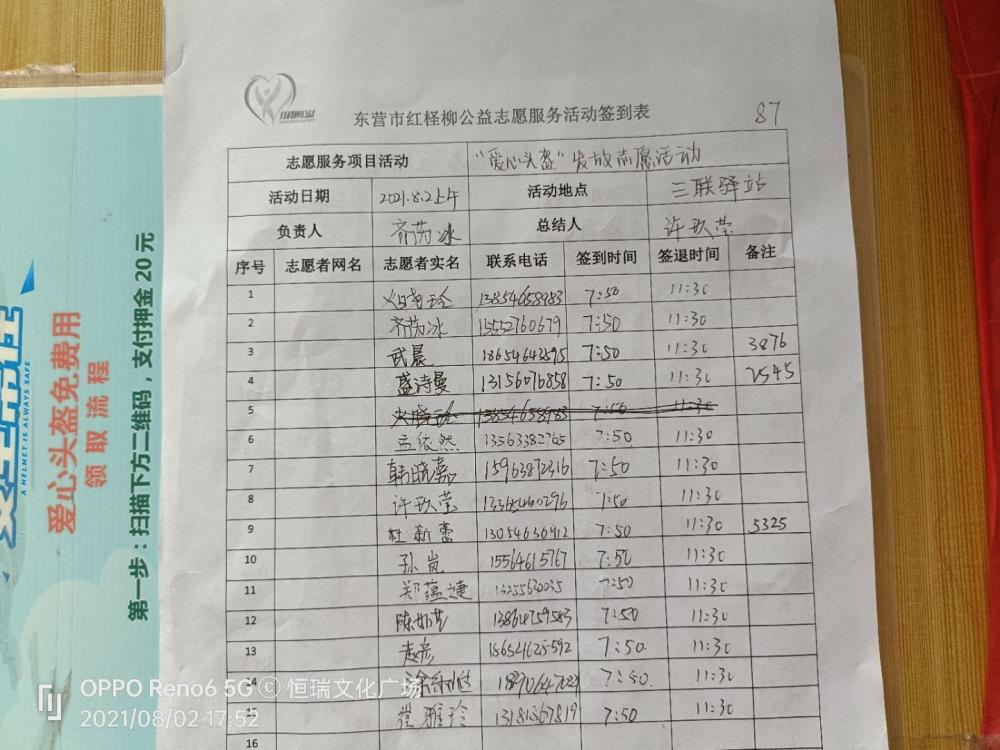 东营市红柽柳公益志愿服务活动签到表
87
志愿服务项目活动 "爱心头盔"发放志愿活动
活动日期 2021.8.2上午 活动地点 三联驿站
负责人 齐芮冰 总结人 许玖莹
序号 志愿者网名 志愿者实名 联系电话 签到时间 签退时间 备注
1 7:50 11:30
2 齐芮冰 15552760679 7:50 11:30
3 武晨 18654642595 7:50 11:30 3876
4 盛诗曼 13156076858 7:50 11:30 2545
5 7:50 11:30
6 孟依然 13563382765 7:50 11:30
7 韩晓嘉 15963872316 7:50 11:30
8 许玖莹 7:50 11:30
9 杜新蕾 13054630912 7:50 11:30 5325
10 孙岚 15564615767 7:50 11:30
11 郑蕴婕 13255630035 7:50 11:30
12 7:50 11:30
13 袁彦 7:50. 11:30
14 7:50. 11:30
15 崔雅玲 13181367819 7:50 11:30
16
A HELMET IS ALWAYS SAFE
爱心头盔免费用
领取流程
第一步：扫描下方二维码，支付押金20元
OPPO Reno6 5G © 恒瑞文化广场
2021/08/02 17:52